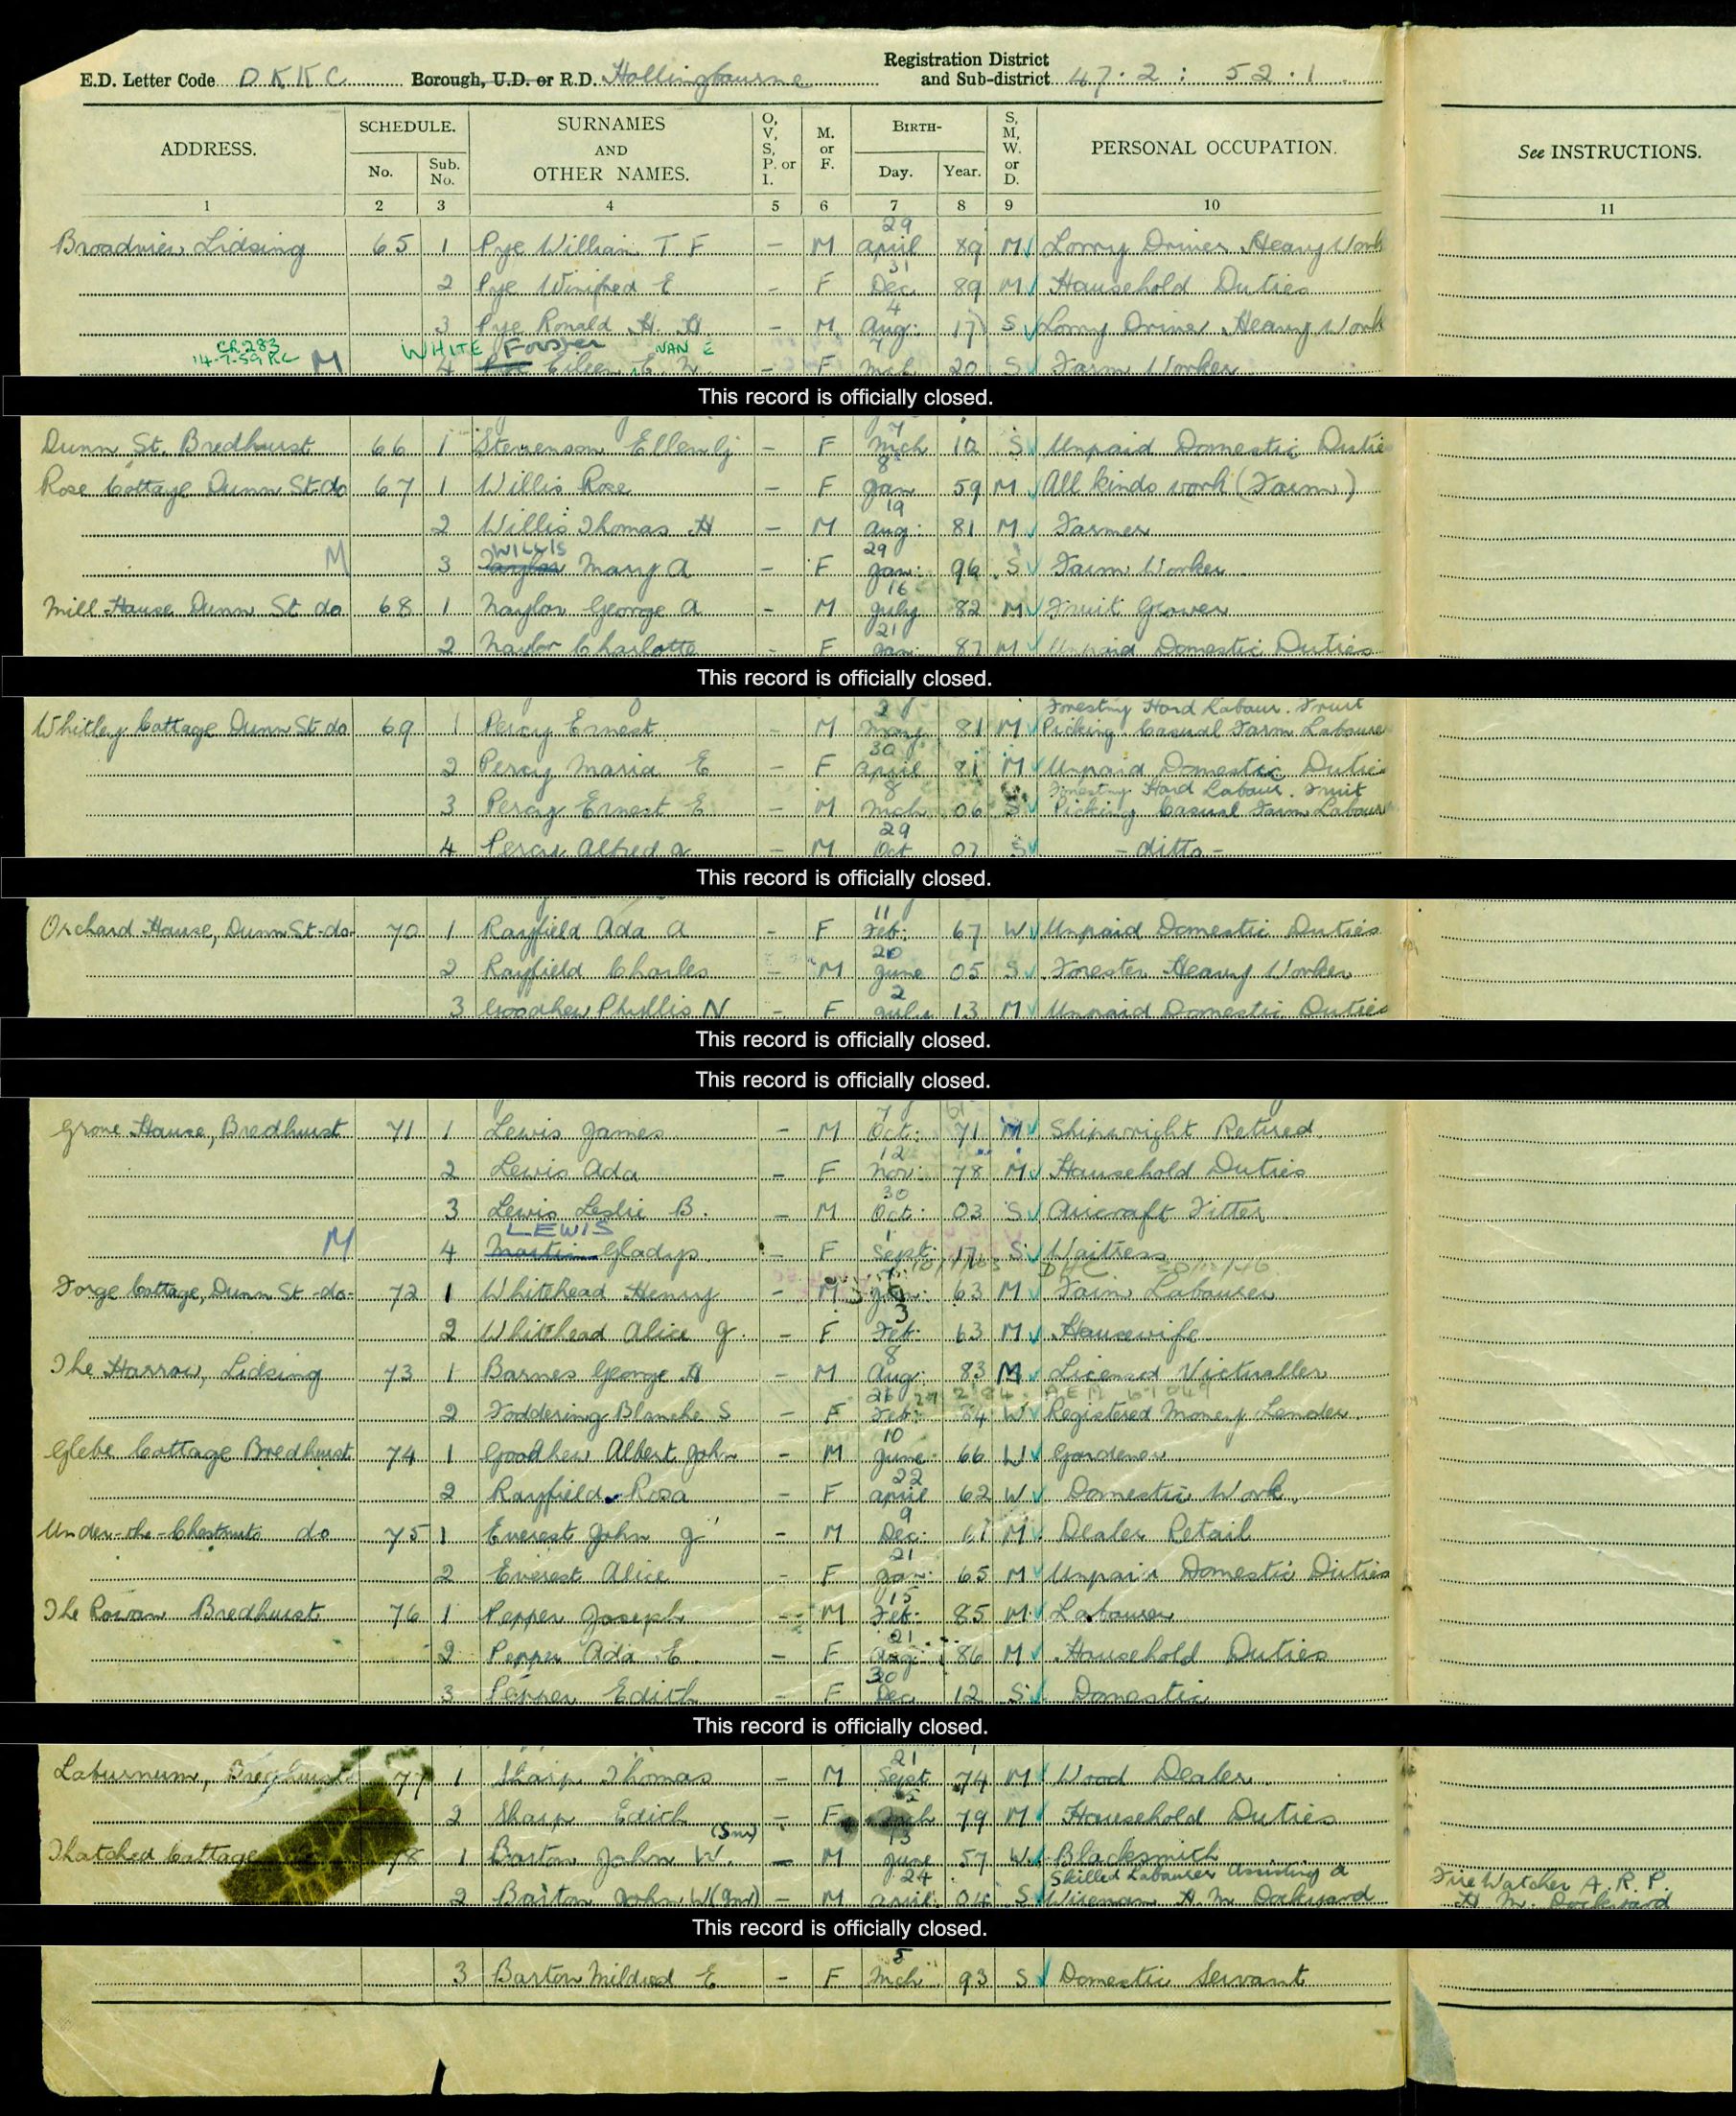 E.D. Letter Code D.K.K.C. Borough, U.D. or R.D. Hollingbourne Registration District and Sub-district 47.2 : 52.1.
ADDRESS. SCHEDULE. No. Sub. No. SURNAMES AND OTHER NAMES. O, V, S, P. or I. M. or F. BIRTH- Day. Year. S, M, W. or D. PERSONAL OCCUPATION. See INSTRUCTIONS.
1 2 3 4 5 6 7 8 9 10 11
Broadview Lidsing 65 1 Pye William T. F - M 29 April 89 M Lorry Driver Heavy Work
2 Pye Winifred E - F 31 Dec 89 M Household Duties
3 Pye Ronald H. H - M 4 Aug: 17 S Lorry Driver Heavy Work
CR283 14-7-59 RC M WHITE VAN E
4 Eileen E. N. - F 7 Mch 20 S Farm Worker
This record is officially closed.
Dunn St. Bredhurst 66 1 Stevenson Ellen - F 7 Mch 12 S Unpaid Domestic Duties
Rose Cottage Dunn St. do 67 1 Willis Rose - F 8 Jan 59 M All kinds work (Farm)
2 Willis Thomas H - M 19 Aug: 81 M Farmer
M WILLIS
3 Mary A - F 29 Jan: 96 S Farm Worker
Mill House Dunn St do 68 1 Naylor George A - M 16 July 82 M Fruit Grower
2 Naylor Charlotte - F 21 Jan: 87 M Unpaid Domestic Duties
This record is officially closed.
Forestry Hard Labour. Fruit
Whitley Cottage Dunn St do 69 1 Percy Ernest - M 81 M Picking Casual Farm Labourer
2 Percy Maria E - F 30 April 81 M Unpaid Domestic Duties
Forestry Hard Labour. Fruit
3 Percy Ernest E - M 8 Mch 06 S Picking Casual Farm Labour
4 Percy Alfred - M 29 Oct 07 S - ditto -
This record is officially closed.
Orchard House, Dunn St -do- 70 1 Rayfield Ada A - F 11 Feb: 67 W Unpaid Domestic Duties
2 Rayfield Charles - M 20 June 05 S Forester Heavy Worker
3 Goodhew Phyllis N - F 2 July 13 M Unpaid Domestic Duties
This record is officially closed.
This record is officially closed.
Grove House, Bredhurst 71 1 Lewis James - M 7 Oct: 71 M Shipwright Retired
2 Lewis Ada - F 12 Nov: 78 M Household Duties
3 Lewis Leslie B. - M 30 Oct: 03 S Aircraft Fitter
M LEWIS
4 Martin Gladys - F 1 Sept: 17 S Waitress
Forge Cottage, Dunn St -do- 72 1 Whitehead Henry - M Jan: 63 M Farm Labourer
2 Whitehead Alice J. - F 3 Feb: 63 M Housewife
The Harrow, Lidsing 73 1 Barnes George H - M 8 Aug: 83 M Licensed Victualler
2 Foddering Blanche S - F 26 Feb: 84 W Registered Money Lender
Glebe Cottage Bredhurst 74 1 Goodhew Albert John - M 10 June 66 W Gardener
2 Rayfield Rosa - F 22 April 62 W Domestic Work.
Under-the-Chestnuts do 75 1 Everest John J - M 9 Dec: 61 M Dealer Retail
2 Everest Alice - F 21 Jan: 65 M Unpaid Domestic Duties
The Rowan Bredhurst 76 1 Pepper Joseph - M 15 Feb: 85 M Labourer
2 Pepper Ada E. - F 21 Aug: 86 M Household Duties
3 Pepper Edith - F 30 Dec 12 S Domestic
This record is officially closed.
Laburnum, Bredhurst 77 1 Sharp Thomas - M 21 Sept 74 M Wood Dealer
2 Sharp Edith - F Mch 79 M Household Duties
Thatched Cottage 78 1 Barton John W. (Snr) - M 13 June 57 W Blacksmith
Skilled Labourer Assisting a Fire Watcher A.R.P.
2 Barton John W (Jnr) - M 24 April 04 S Wireman H.M. Dockyard H.M. Dockyard
This record is officially closed.
3 Barton Mildred E - F 5 Mch 93 S Domestic Servant